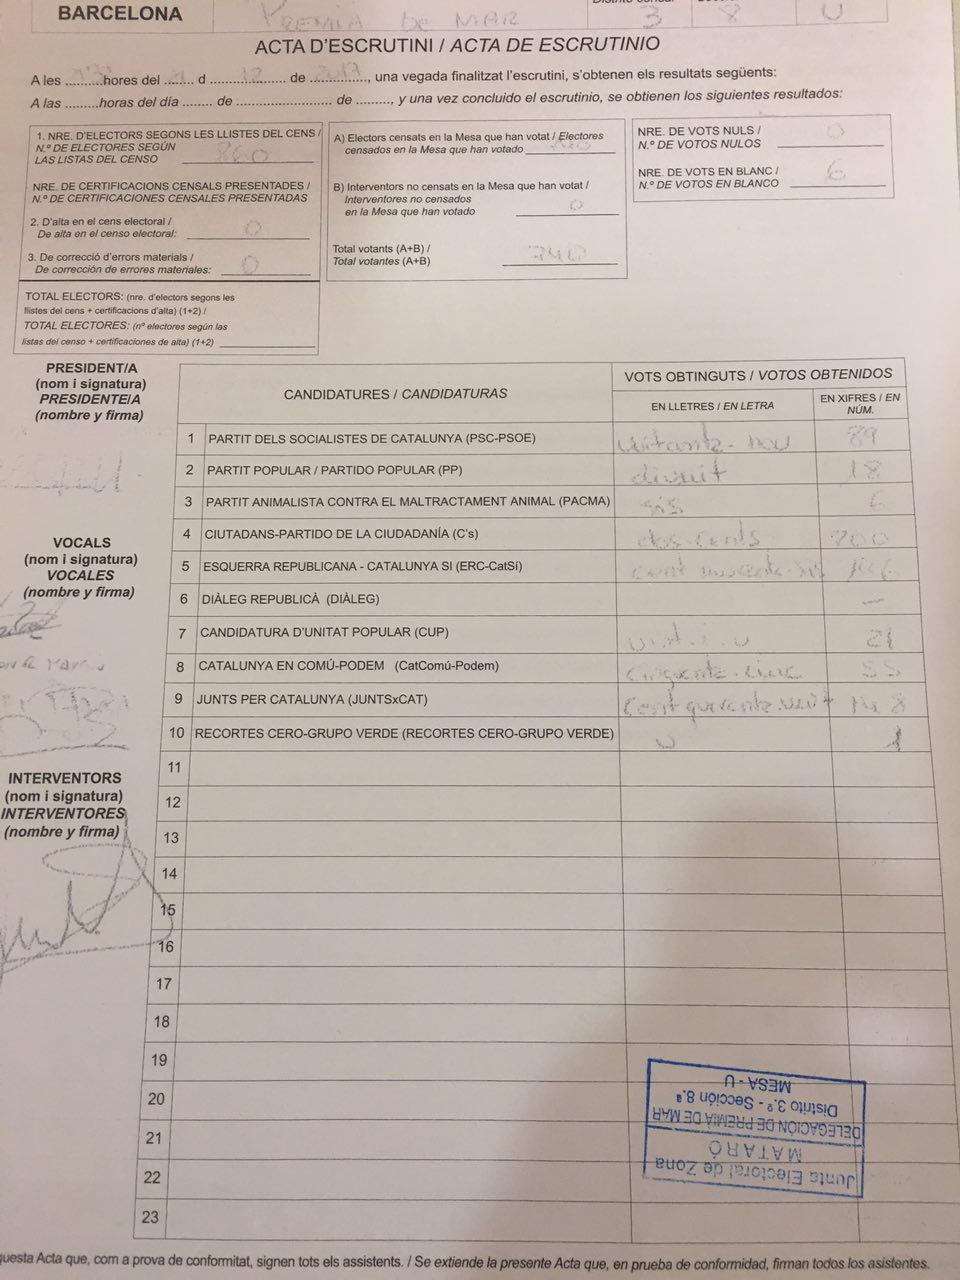 BARCELONA
PREMIÀ DE MAR
3 8 U
ACTA D'ESCRUTINI / ACTA DE ESCRUTINIO
A les ......... hores del ...... d ................ de 2017, una vegada finalitzat l'escrutini, s'obtenen els resultats següents:
A las .........horas del día ....... de ....................... de ........., y una vez concluido el escrutinio, se obtienen los siguientes resultados:
1. NRE. D'ELECTORS SEGONS LES LLISTES DEL CENS /
N.º DE ELECTORES SEGÚN
LAS LISTAS DEL CENSO 860
NRE. DE CERTIFICACIONS CENSALS PRESENTADES /
N.º DE CERTIFICACIONES CENSALES PRESENTADAS
2. D'alta en el cens electoral /
De alta en el censo electoral: 0
3. De correcció d'errors materials /
De corrección de errores materiales: 0
TOTAL ELECTORS: (nre. d'electors segons les
llistes del cens + certificacions d'alta) (1+2) /
TOTAL ELECTORES: (nº electores según las
listas del censo + certificaciones de alta) (1+2)
A) Electors censats en la Mesa que han votat / Electores
censados en la Mesa que han votado
B) Interventors no censats en la Mesa que han votat /
Interventores no censados
en la Mesa que han votado 0
Total votants (A+B) /
Total votantes (A+B) 740
NRE. DE VOTS NULS /
N.º DE VOTOS NULOS 0
NRE. DE VOTS EN BLANC /
N.º DE VOTOS EN BLANCO 6
PRESIDENT/A
(nom i signatura)
PRESIDENTE/A
(nombre y firma)
VOCALS
(nom i signatura)
VOCALES
(nombre y firma)
INTERVENTORS
(nom i signatura)
INTERVENTORES
(nombre y firma)
CANDIDATURES / CANDIDATURAS
VOTS OBTINGUTS / VOTOS OBTENIDOS
EN LLETRES / EN LETRA
EN XIFRES / EN
NÚM.
1 PARTIT DELS SOCIALISTES DE CATALUNYA (PSC-PSOE) vuitanta-nou 89
2 PARTIT POPULAR / PARTIDO POPULAR (PP) divuit 18
3 PARTIT ANIMALISTA CONTRA EL MALTRACTAMENT ANIMAL (PACMA) sis 6
4 CIUTADANS-PARTIDO DE LA CIUDADANÍA (C's) dos-cents 200
5 ESQUERRA REPUBLICANA - CATALUNYA SI (ERC-CatSí) cent
6 DIÀLEG REPUBLICÀ (DIÀLEG) —
7 CANDIDATURA D'UNITAT POPULAR (CUP) 21
8 CATALUNYA EN COMÚ-PODEM (CatComú-Podem) cinquanta-cinc 55
9 JUNTS PER CATALUNYA (JUNTSxCAT) cent quaranta vuit
10 RECORTES CERO-GRUPO VERDE (RECORTES CERO-GRUPO VERDE) u 1
11
12
13
14
15
16
17
18
19
20
21
22
23
Junta Electoral de Zona
MATARÓ
DELEGACIÓN DE PREMIA DE MAR
Distrito 3.º - Sección 8.ª
MESA - U
questa Acta que, com a prova de conformitat, signen tots els assistents. / Se extiende la presente Acta que, en prueba de conformidad, firman todos los asistentes.